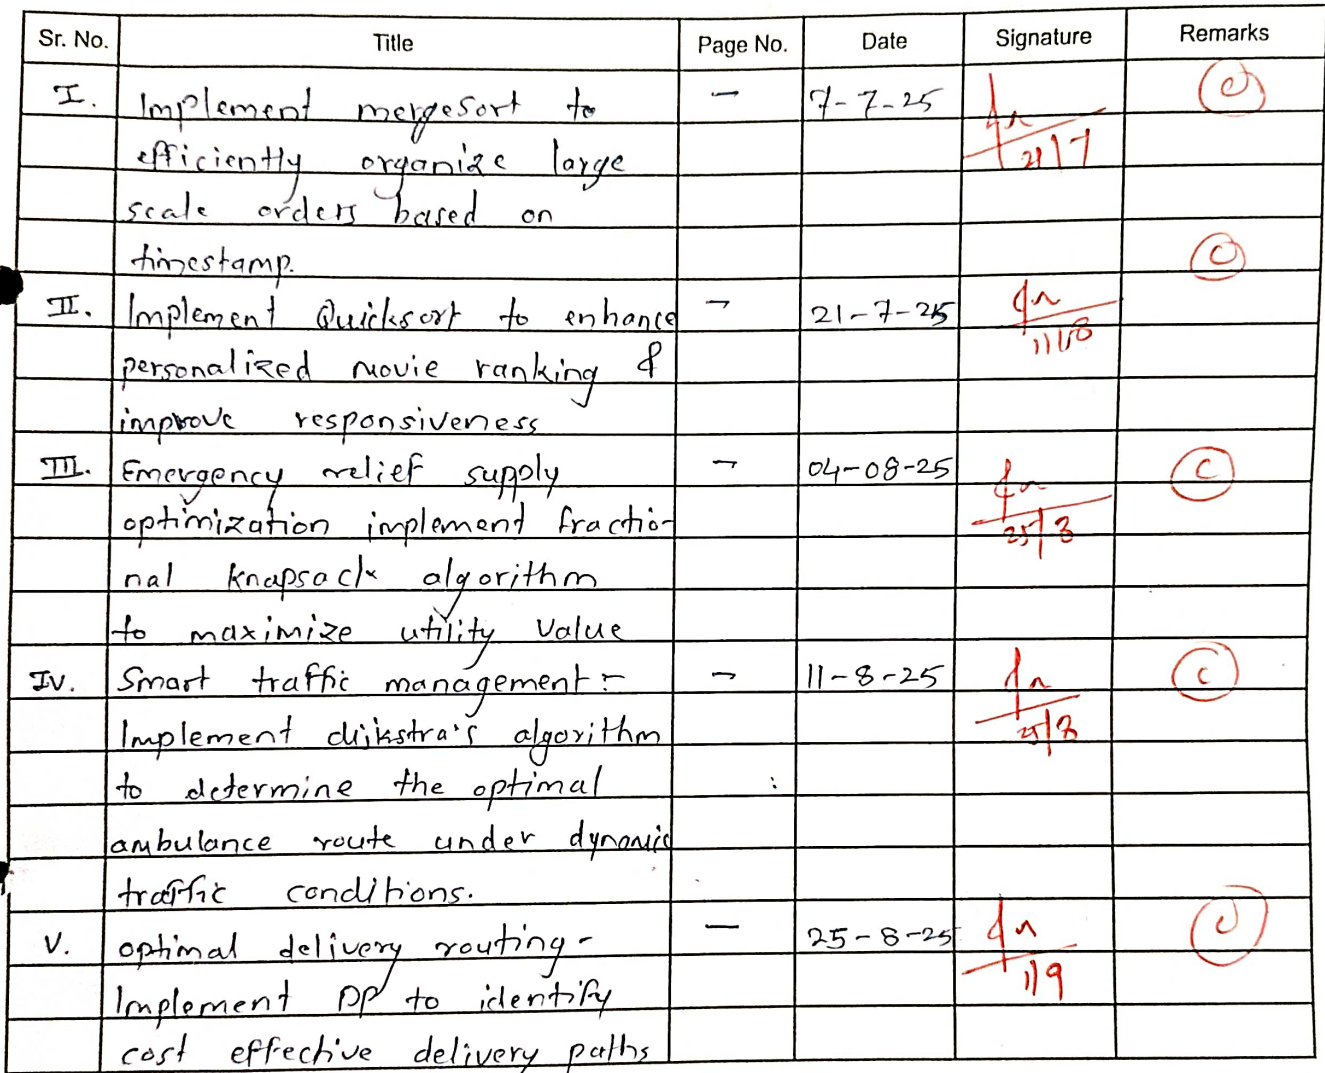 Sr. No. Title Page No. Date Signature Remarks
I. Implement mergesort to — 7-7-25 C
efficiently organize large 21/7
scale orders based on
timestamp. C
II. Implement Quicksort to enhance — 21-7-25
personalized movie ranking & 11/8
improve responsiveness
III. Emergency relief supply — 04-08-25 C
optimization implement fractio- 25/8
nal knapsack algorithm
to maximize utility value
IV. Smart traffic management :- — 11-8-25 C
Implement dijkstra's algorithm 25/8
to determine the optimal :
ambulance route under dynamic
traffic conditions.
V. optimal delivery routing - — 25-8-25 C
Implement DP to identify 1/9
cost effective delivery paths